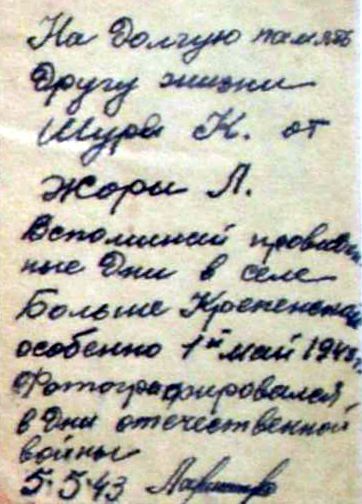 На Долгую память
Другу жизни
Шуры К. от
Жоры Л.
Вспоминай проведен
ные Дни в селе
Больше Крепенская
особенно 1й май 1943 г.
Фотографировался
в Дни отечественной
войны
5.5.43